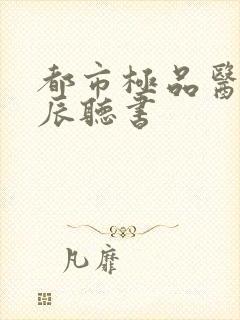 都市極品醫
辰聽書
凡靡